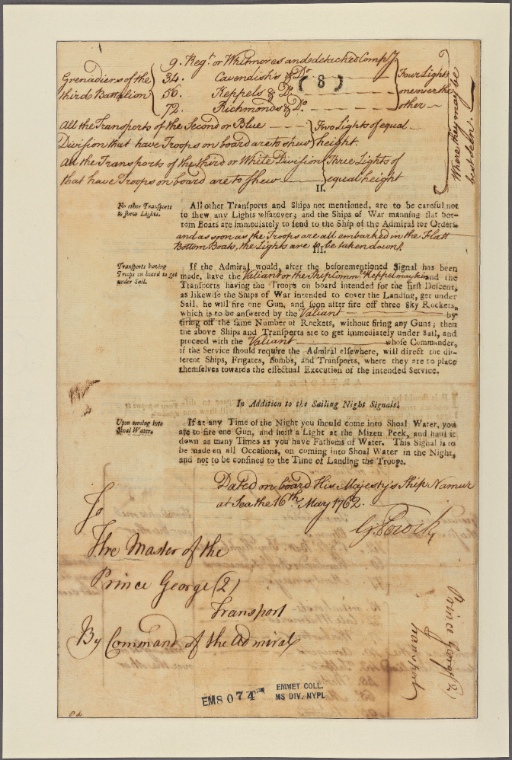 9. Regt. or Whitmores and detached Compy.
Grenadiers of the 34. Cavendish's & Do. Four Lights
third Battalion 56. Keppels & Do. one over the
72. Richmonds & Do. other
( 8 )
Where they may be
best seen.
All the Transports of the Second or Blue Two Lights of equal
Division that have Troops on board are to shew height
All the Transports of the third or White Division Three Lights of
that have Troops on board are to Shew equal height
II.
No other Transports
to shew Lights.
All other Transports and Ships not mentioned, are to be careful not
to shew any Lights whatever; and the Ships of War manning flat bot-
tom Boats are immediately to send to the Ship of the Admiral for Orders
and as soon as the Troops are all embarked in the Flatt
Bottom Boats, the Lights are to be taken down.
III.
Transports having
Troops on board to get
under Sail.
If the Admiral would, after the beforementioned Signal has been
made, have the Valiant or the Ship Commre. Keppel may be in and the
Transports having the Troops on board intended for the first Descent,
as likewise the Ships of War intended to cover the Landing, get under
Sail, he will fire one Gun, and soon after fire off three Sky Rockets,
which is to be answered by the Valiant by
firing off the same Number of Rockets, without firing any Gun; then
the above Ships and Transports are to get immediately under Sail, and
proceed with the Valiant whose Commander,
if the Service should require the Admiral elsewhere, will direct the dif-
ferent Ships, Frigates, Bombs, and Transports, where they are to place
themselves towards the effectual Execution of the intended Service.
In Addition to the Sailing Night Signals.
Upon coming into
Shoal Water.
If at any Time of the Night you should come into Shoal Water, you
are to fire one Gun, and hoist a Light at the Mizen Peek, and haul it
down as many Times as you have Fathoms of Water. This Signal is to
be made on all Occasions, on coming into Shoal Water in the Night,
and not to be confined to the Time of Landing the Troops.
Dated on board His Majesty's Ship Namur
at Sea the 16th. May 1762.
G. Pocock
To
The Master of the
Prince George (2)
Transport
By Command of the Admiral
Prince George (2)
Transport
EM8074
EMMET COLL.
MS DIV. NYPL